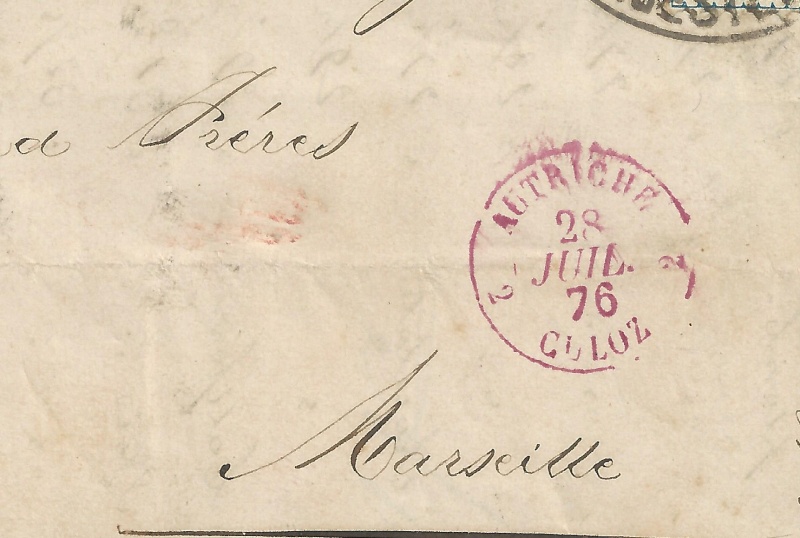 d Fréres
AUTRICHE
28
JUIL.
76
2 2
CULOZ
Marseille